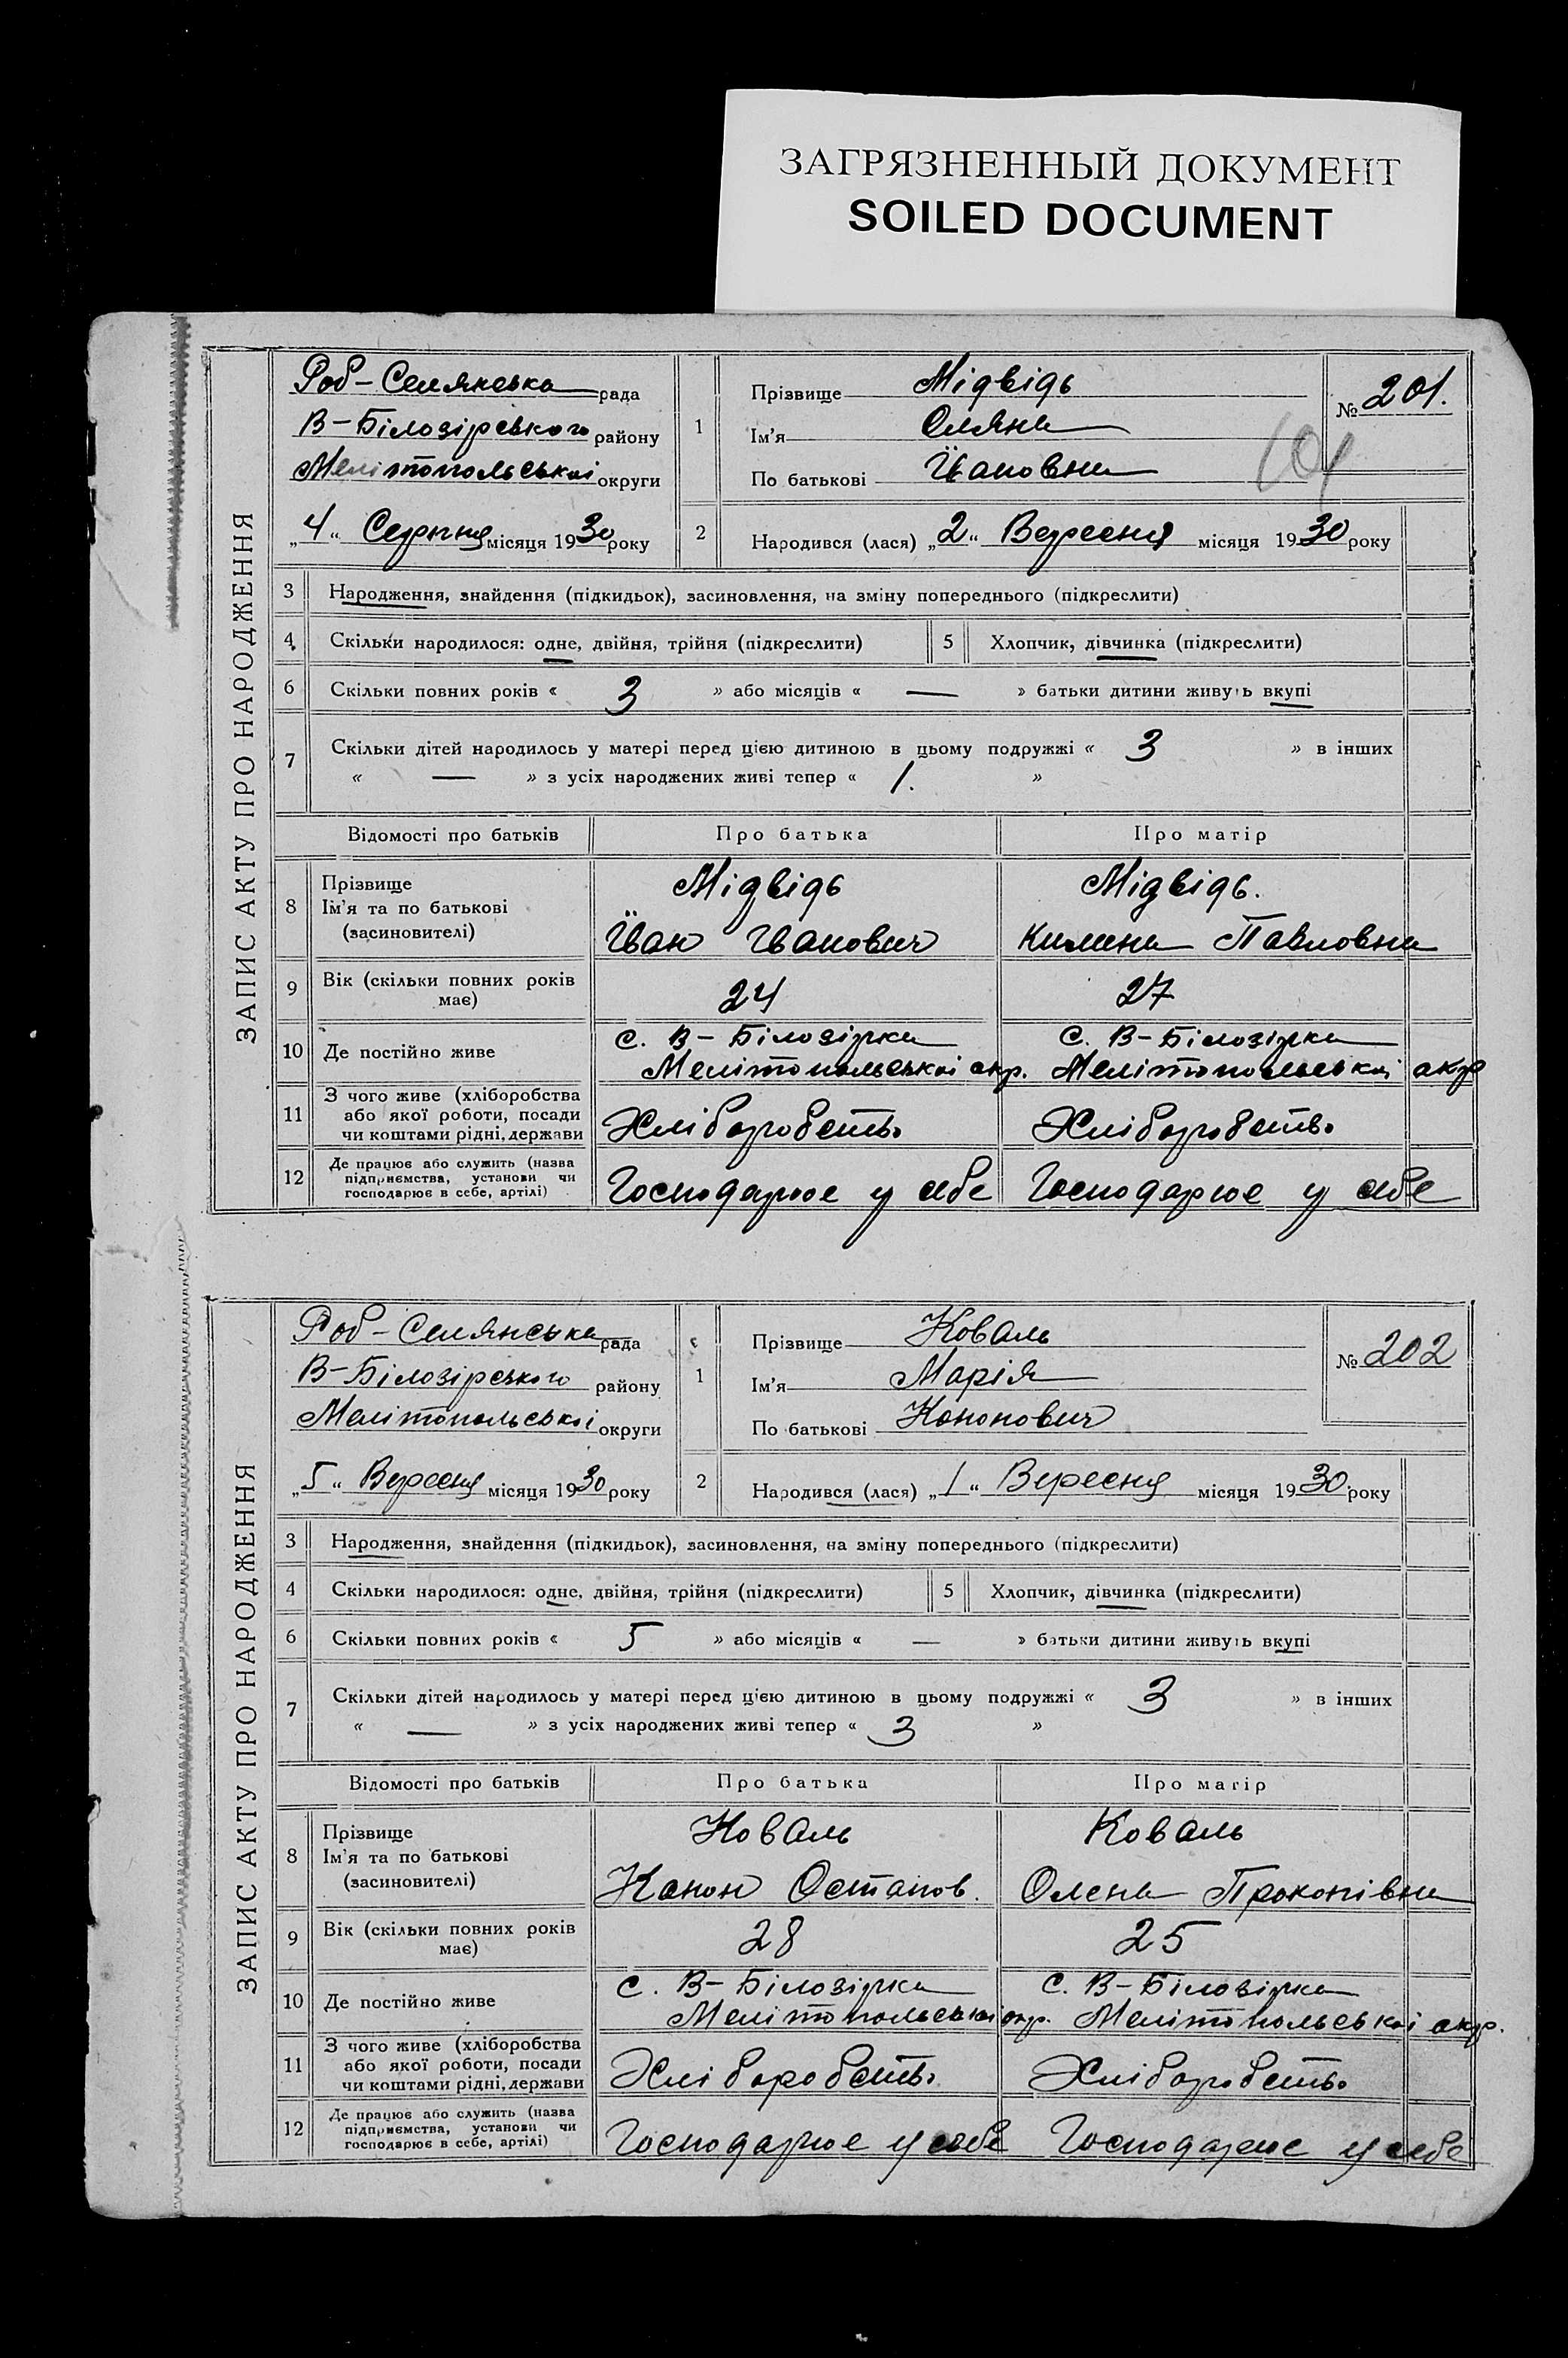 ЗАГРЯЗНЕННЫЙ ДОКУМЕНТ
SOILED DOCUMENT
ЗАПИС АКТУ ПРО НАРОДЖЕННЯ
Роб-Селянська рада
В-Білозірського району
Мелітопольської округи
„4“ Серпня місяця 1930 року
1
Прізвище Мідвідь
Ім'я Оляна
По батькові Івановна
№ 201.
101
2 Народився (лася) „2“ Вересня місяця 1930 року
3 Народження, знайдення (підкидьок), засиновлення, на зміну попереднього (підкреслити)
4 Скільки народилося: одне, двійня, трійня (підкреслити) 5 Хлопчик, дівчинка (підкреслити)
6 Скільки повних років « 3 » або місяців « — » батьки дитини живуть вкупі
7 Скільки дітей народилось у матері перед цією дитиною в цьому подружжі « 3 » в інших
« — » з усіх народжених живі тепер « 1. »
Відомості про батьків Про батька Про матір
8 Прізвище
Ім'я та по батькові
(засиновителі)
Мідвідь Мідвідь.
Іван Іванович Килина Павловна
9 Вік (скільки повних років має) 24 27
10 Де постійно живе
с. В-Білозірка с. В-Білозірка
Мелітопольської окр. Мелітопольської окр
11 З чого живе (хліборобства
або якої роботи, посади
чи коштами рідні, держави
Хліборобств. Хліборобств.
12 Де працює або служить (назва
підприємства, установи чи
господарює в себе, артілі)
Господарює у себе Господарює у себе
ЗАПИС АКТУ ПРО НАРОДЖЕННЯ
Роб-Селянська рада
В-Білозірського району
Мелітопольської округи
„5“ Вересня місяця 1930 року
1
Прізвище Коваль
Ім'я Марія
По батькові Кононович
№ 202
2 Народився (лася) „1“ Вересня місяця 1930 року
3 Народження, знайдення (підкидьок), засиновлення, на зміну попереднього (підкреслити)
4 Скільки народилося: одне, двійня, трійня (підкреслити) 5 Хлопчик, дівчинка (підкреслити)
6 Скільки повних років « 5 » або місяців « — » батьки дитини живуть вкупі
7 Скільки дітей народилось у матері перед цією дитиною в цьому подружжі « 3 » в інших
« — » з усіх народжених живі тепер « 3 »
Відомості про батьків Про батька Про матір
8 Прізвище
Ім'я та по батькові
(засиновителі)
Коваль Коваль
Конон Остапов. Олена Прокопівна
9 Вік (скільки повних років має) 28 25
10 Де постійно живе
с. В-Білозірка с. В-Білозірка
Мелітопольської окр. Мелітопольської окр.
11 З чого живе (хліборобства
або якої роботи, посади
чи коштами рідні, держави
Хліборобств. Хліборобств.
12 Де працює або служить (назва
підприємства, установи чи
господарює в себе, артілі)
Господарює у себе Господарює у себе